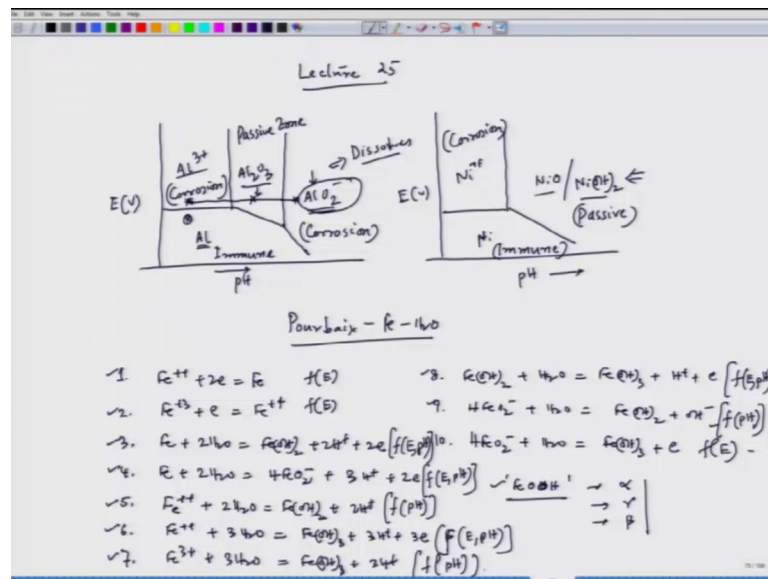 Edit View Insert Actions Tools Help
Lecture 25
Passive Zone
Al³⁺
(Corrosion)
Al₂O₃
AlO₂⁻
⇒ Dissolves
(Corrosion)
E(V)
Al
Immune
pH
(Corrosion)
Ni⁺⁺
NiO / Ni(OH)₂ ⇐
(Passive)
E(V)
Ni
(Immune)
pH →
Pourbaix - Fe - H₂O
✓1. Fe⁺⁺ + 2e = Fe f(E)
✓2. Fe⁺³ + e = Fe⁺⁺ f(E)
✓3. Fe + 2H₂O = Fe(OH)₂ + 2H⁺ + 2e [f(E,pH)]
✓4. Fe + 2H₂O = HFeO₂⁻ + 3H⁺ + 2e [f(E,pH)]
✓5. Fe⁺⁺ + 2H₂O = Fe(OH)₂ + 2H⁺ [f(pH)]
✓6. Fe⁺⁺ + 3H₂O = Fe(OH)₃ + 3H⁺ + 3e [F(E,pH)]
✓7. Fe³⁺ + 3H₂O = Fe(OH)₃ + 3H⁺ [f(pH)].
✓8. Fe(OH)₂ + H₂O = Fe(OH)₃ + H⁺ + e [f(E,pH)
✓9. HFeO₂⁻ + H₂O = Fe(OH)₂ + OH⁻ [f(pH)]
10. HFeO₂⁻ + H₂O = Fe(OH)₃ + e f(E) -
✓ 'FeOOH' → α
→ γ
→ β